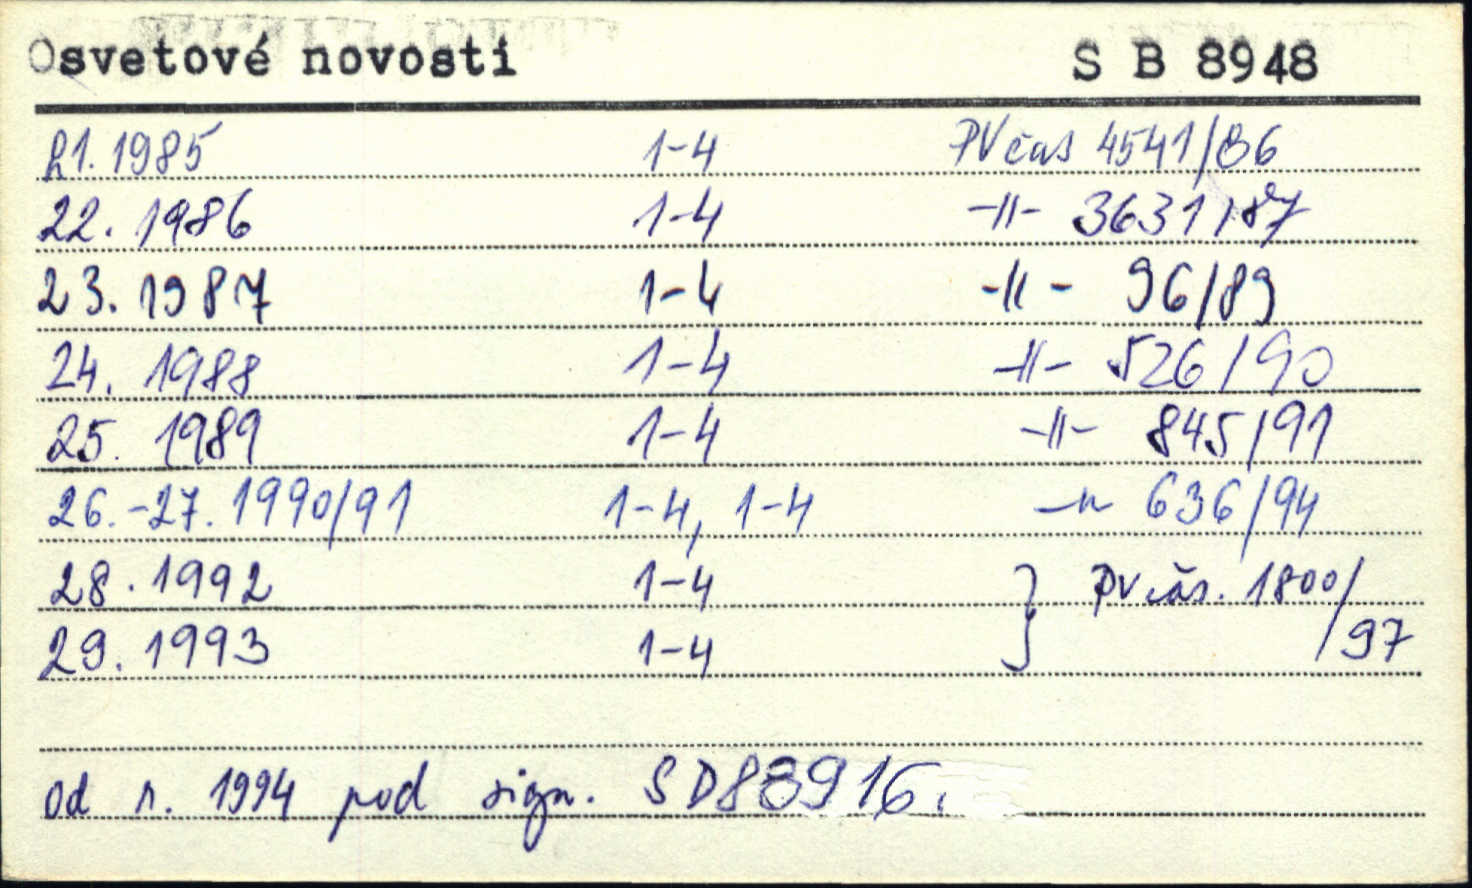 Osvetové novosti S B 8948
21. 1985 1-4 PV čas 4541/86
22. 1986 1-4 -||- 3631/87
23. 1987 1-4 -||- 96/89
24. 1988 1-4 -||- 526/90
25. 1989 1-4 -||- 845/91
26.-27. 1990/91 1-4, 1-4 -"- 636/94
28. 1992 1-4 } PV čas. 1800/
29. 1993 1-4 /97
od r. 1994 pod sign. SD88916.